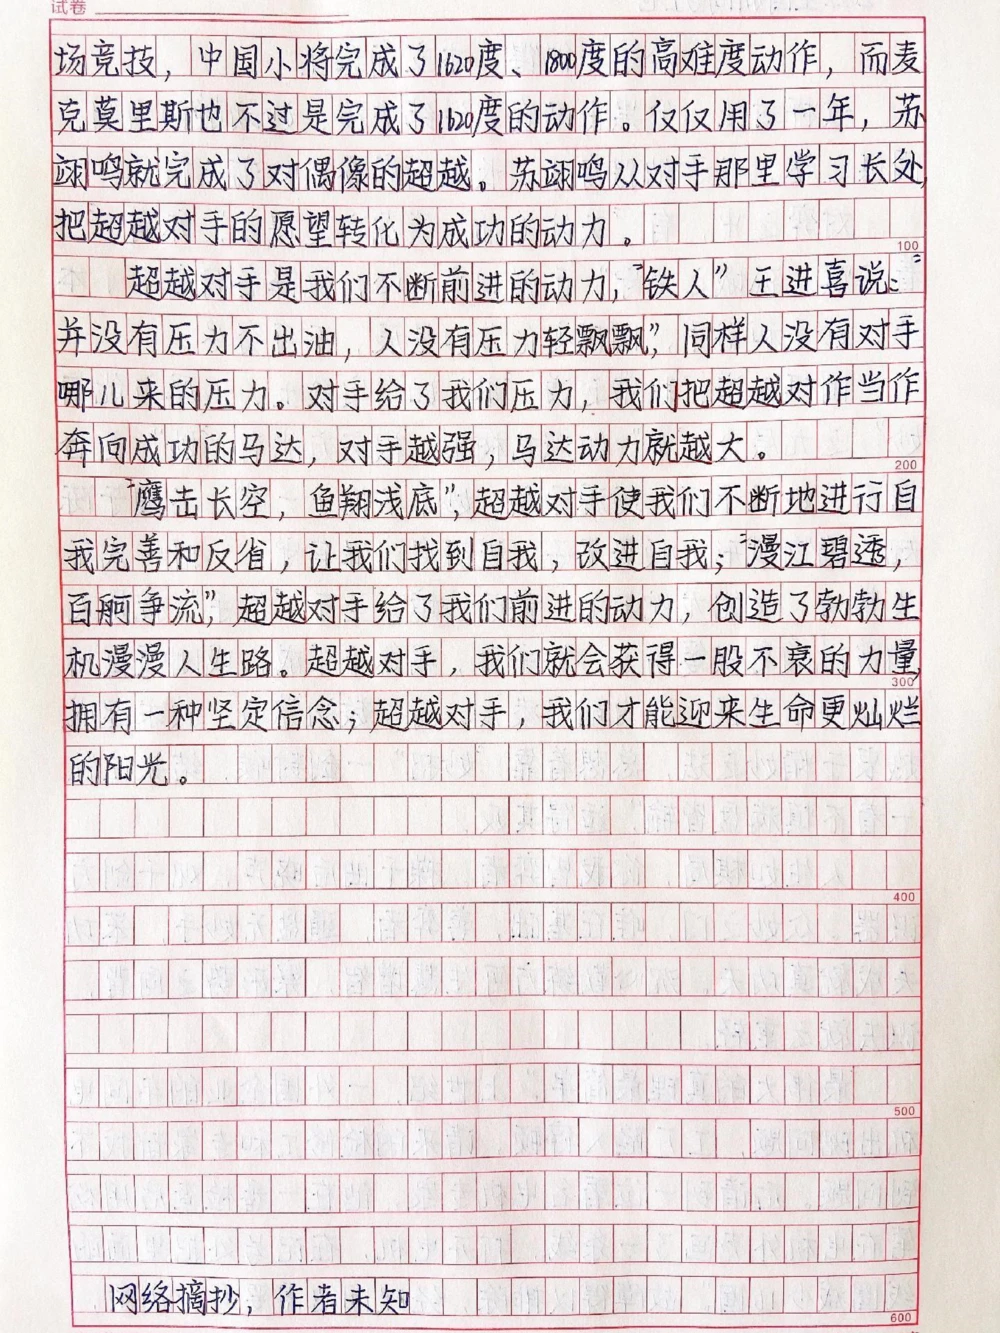 试卷
场竞技，中国小将完成了1620度、1800度的高难度动作，而麦
克莫里斯也不过是完成了1620度的动作。仅仅用了一年，苏
翊鸣就完成了对偶像的超越。苏翊鸣从对手那里学习长处，
把超越对手的愿望转化为成功的动力。
100
超越对手是我们不断前进的动力，“铁人”王进喜说：“
井没有压力不出油，人没有压力轻飘飘”，同样人没有对手
哪儿来的压力。对手给了我们压力，我们把超越对作当作
奔向成功的马达，对手越强，马达动力就越大。
200
“鹰击长空，鱼翔浅底”，超越对手使我们不断地进行自
我完善和反省，让我们找到自我，改进自我；“漫江碧透，
百舸争流”，超越对手给了我们前进的动力，创造了勃勃生
机漫漫人生路。超越对手，我们就会获得一股不衰的力量，
300
拥有一种坚定信念；超越对手，我们才能迎来生命更灿烂
的阳光。
400
500
网络摘抄，作者未知
600